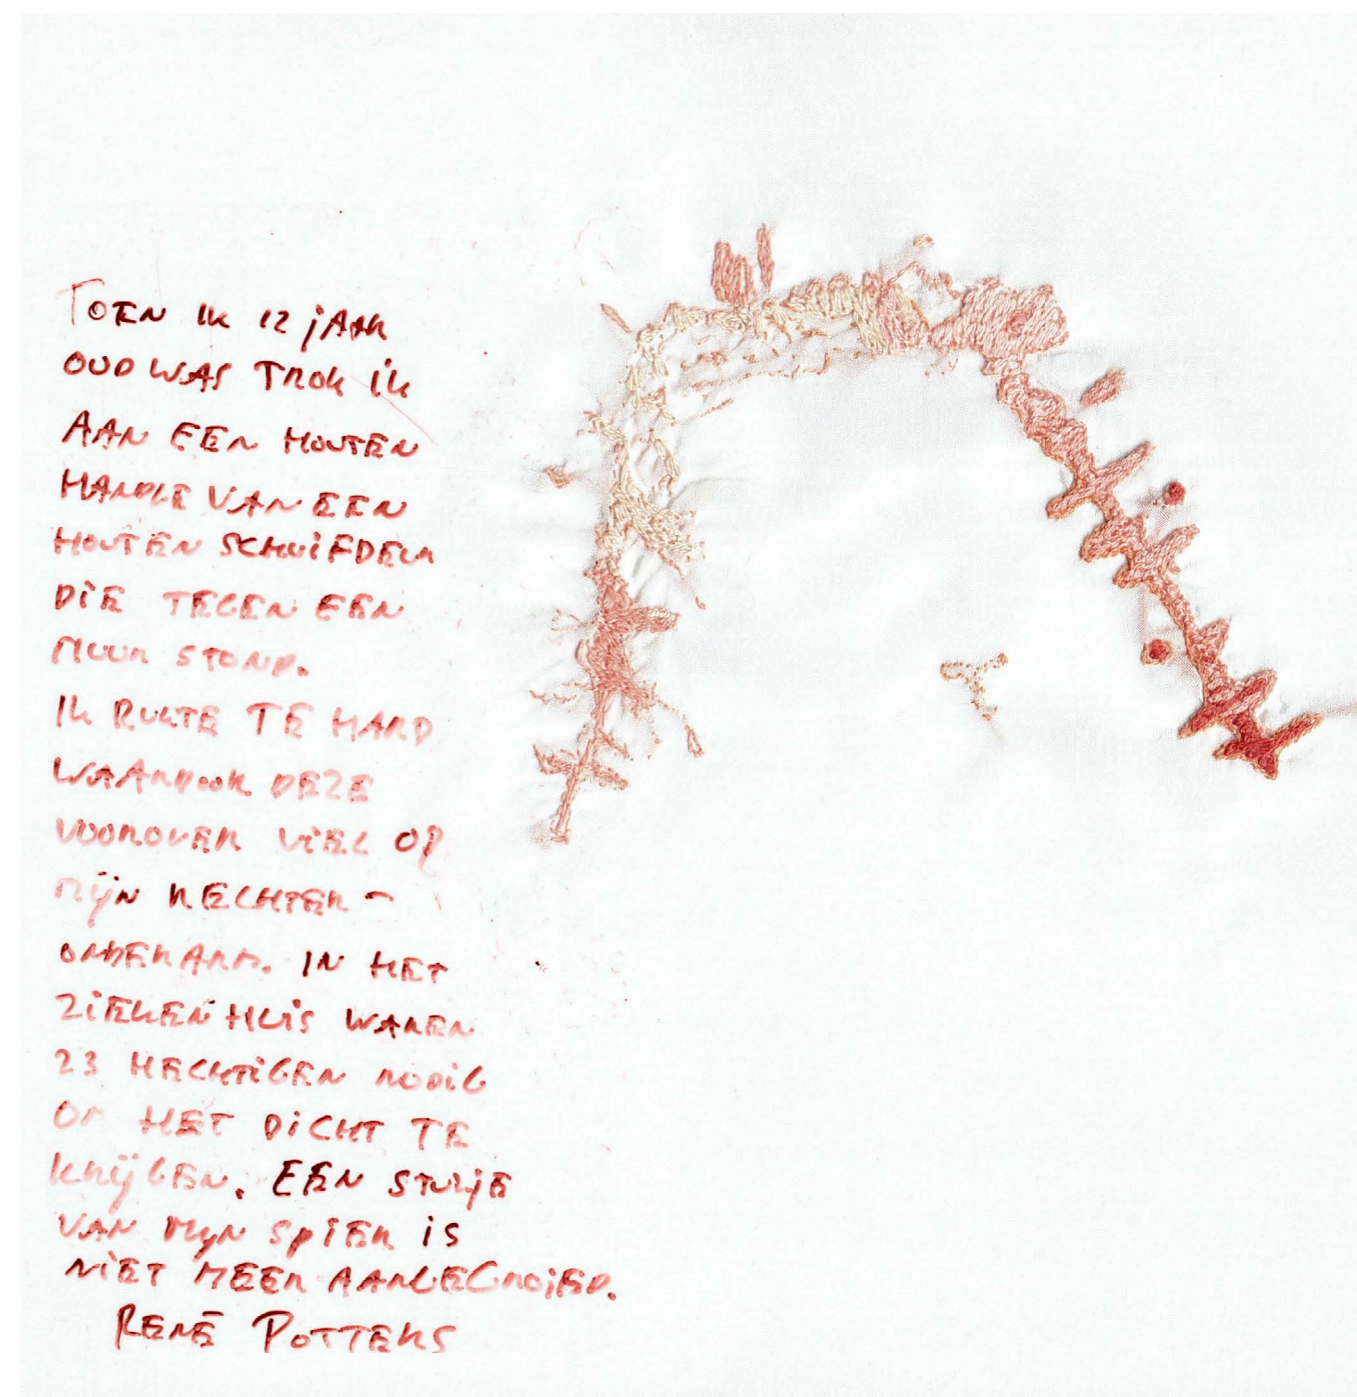 TOEN IK 12 jAAR
OUD WAS TROK iK
AAN EEN HOUTEN
HANDLE VAN EEN
HOUTEN SCHUiFDEUR
DiE TEGEN EEN
MUUR STOND.
IK RUKTE TE HARD
WAARDOOR DEZE
VOOROVER ViEL OP
MijN RECHTER-
ONDERARM. IN HET
ZiEKENHUiS WAREN
23 HECHTiGEN NODiG
OM HET DiCHT TE
KRijGEN. EEN STUKjE
VAN MijN SPiER iS
NiET MEER AANGEGROEiD.
RENÉ POTTERS